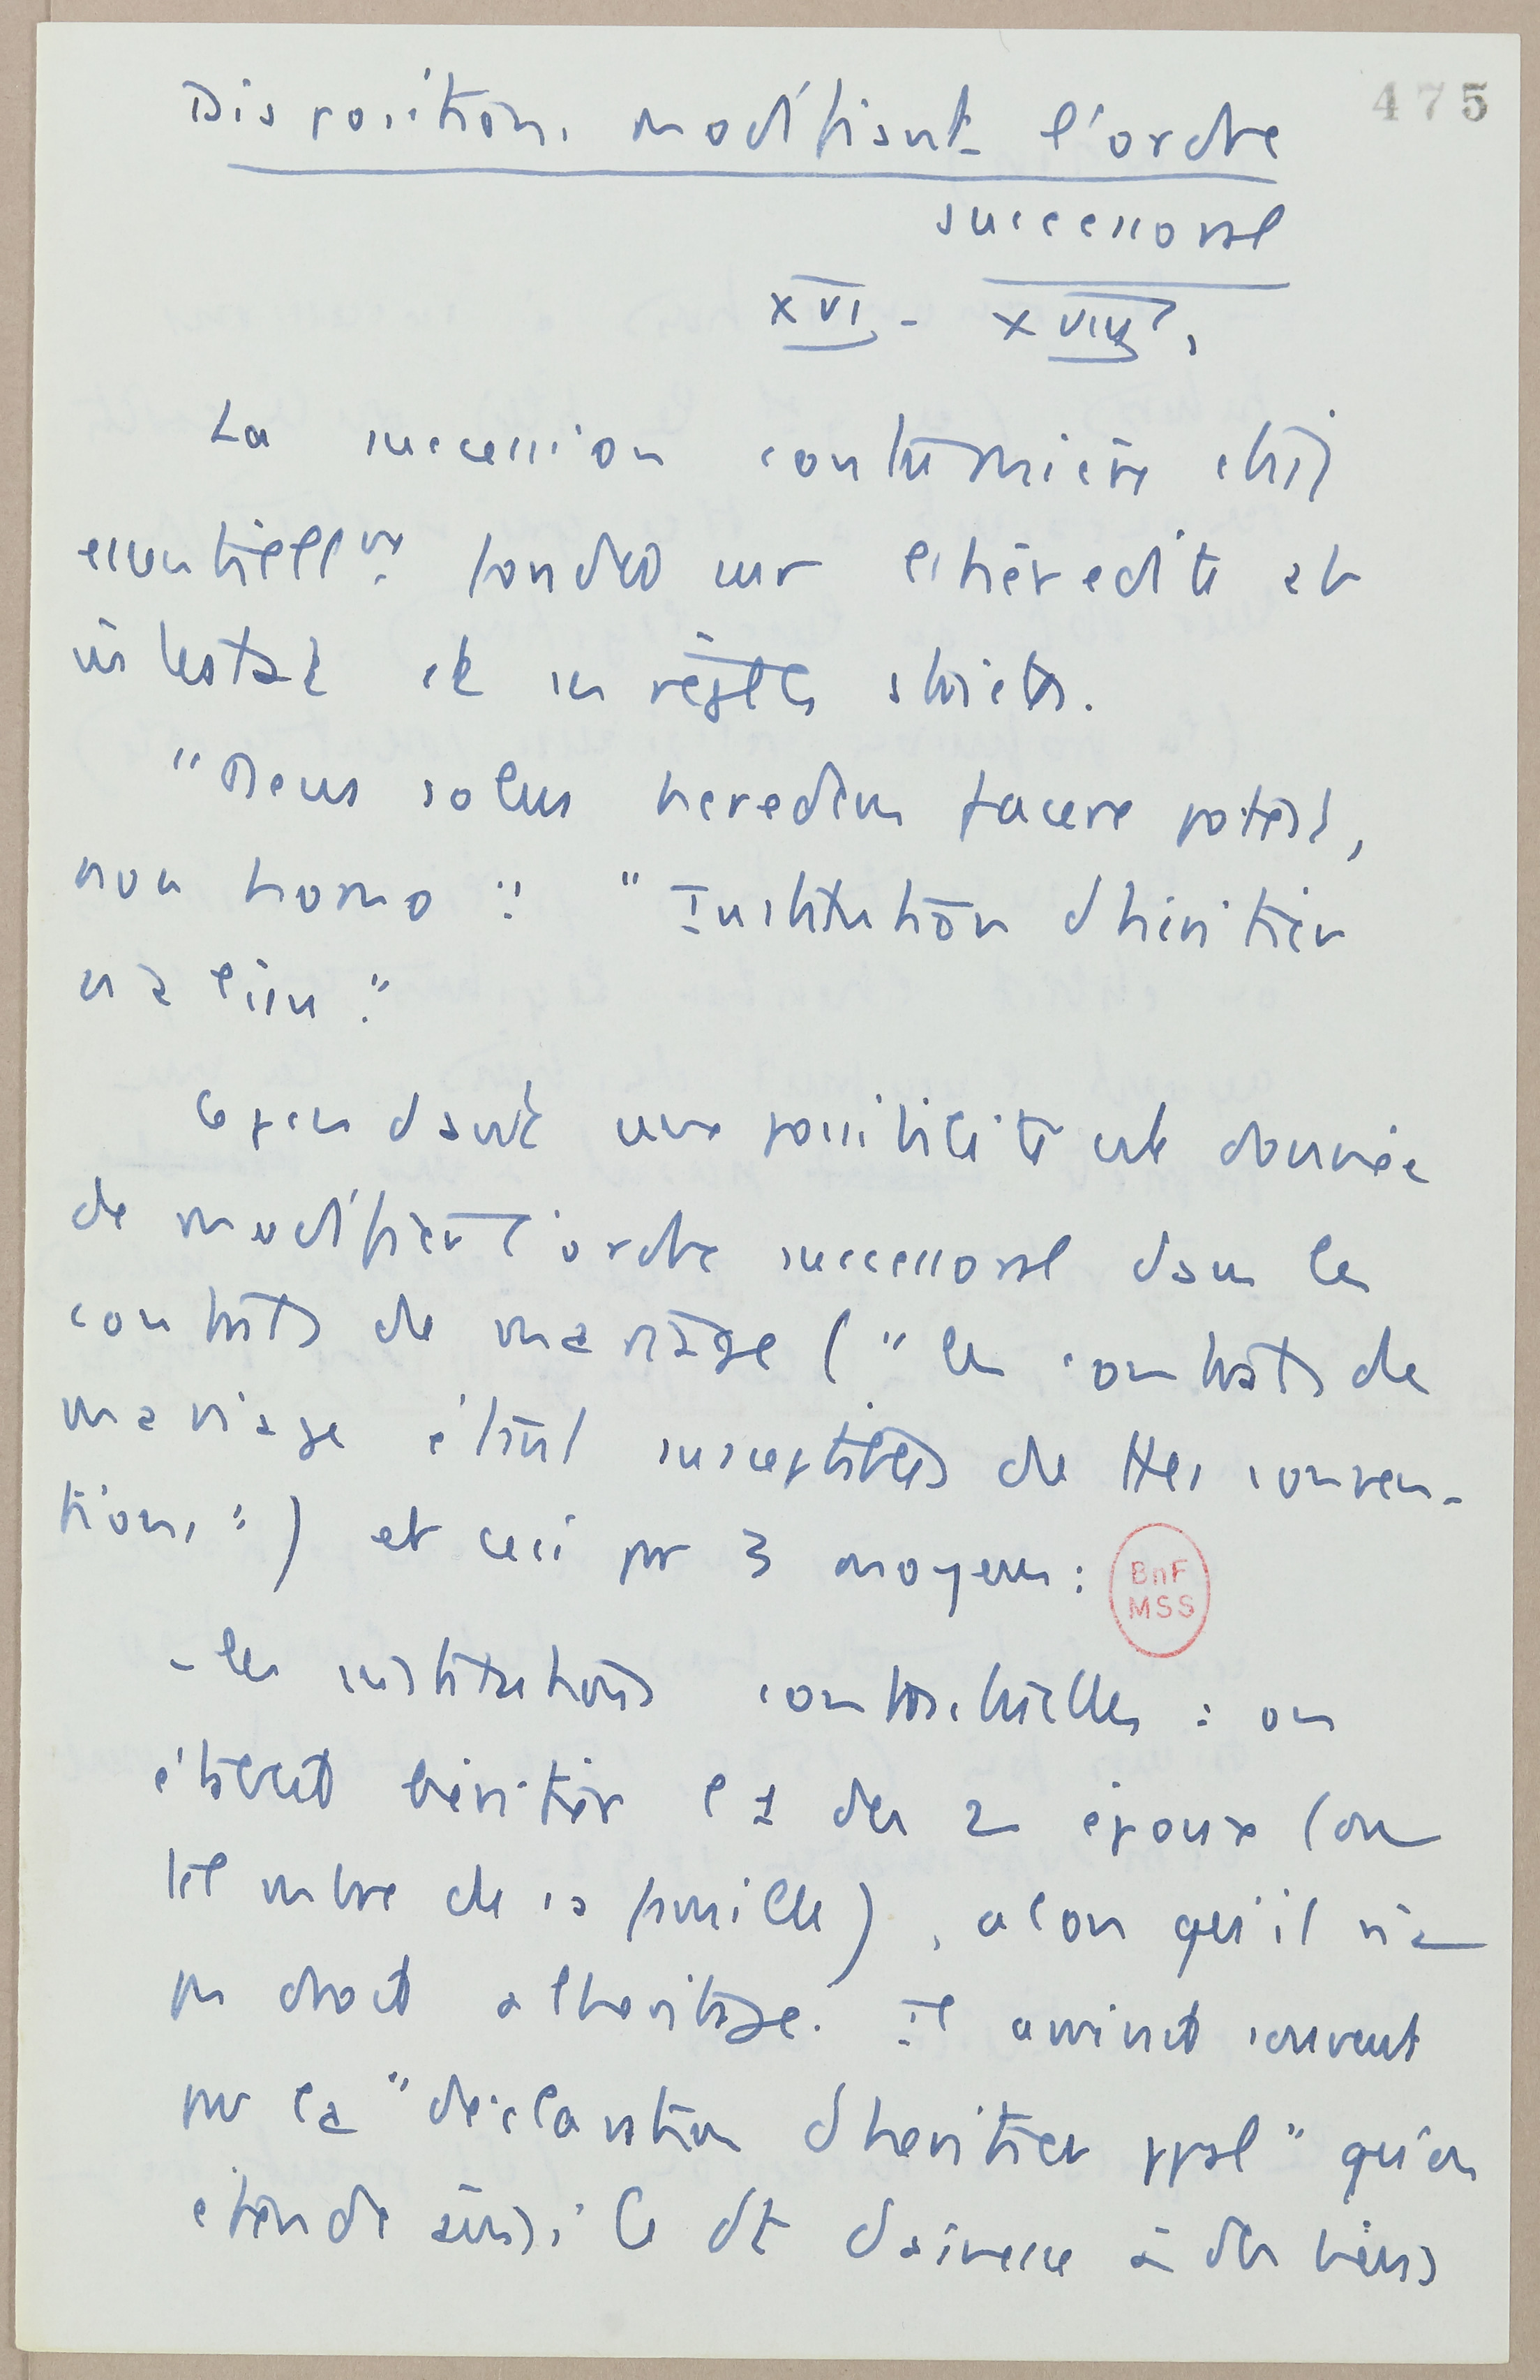 475
Dispositions modifiant l'ordre
successoral
XVI - XVIIIe.
La succession coutumière était
essentiellmt fondée sur l'hérédité ab
intestat et sa règle stricte.
"Deus solus heredem facere potest,
non homo". "Institution d'héritier
n'a lieu".
Cependant une possibilité est donnée
de modifier l'ordre successoral dans les
contrats de mariage ("les contrats de
mariage étant susceptibles de ttes conven-
tions") et ceci par 3 moyens :
BnF
MSS
- les institutions contractuelles : on
établit héritier l'1 des 2 époux (ou
tel mbre de sa famille), alors qu'il n'a
pas droit à l'héritage. Il arrivait souvent
par la "déclaration d'héritier ppal" qu'on
étende ainsi le dt d'aînesse à des biens